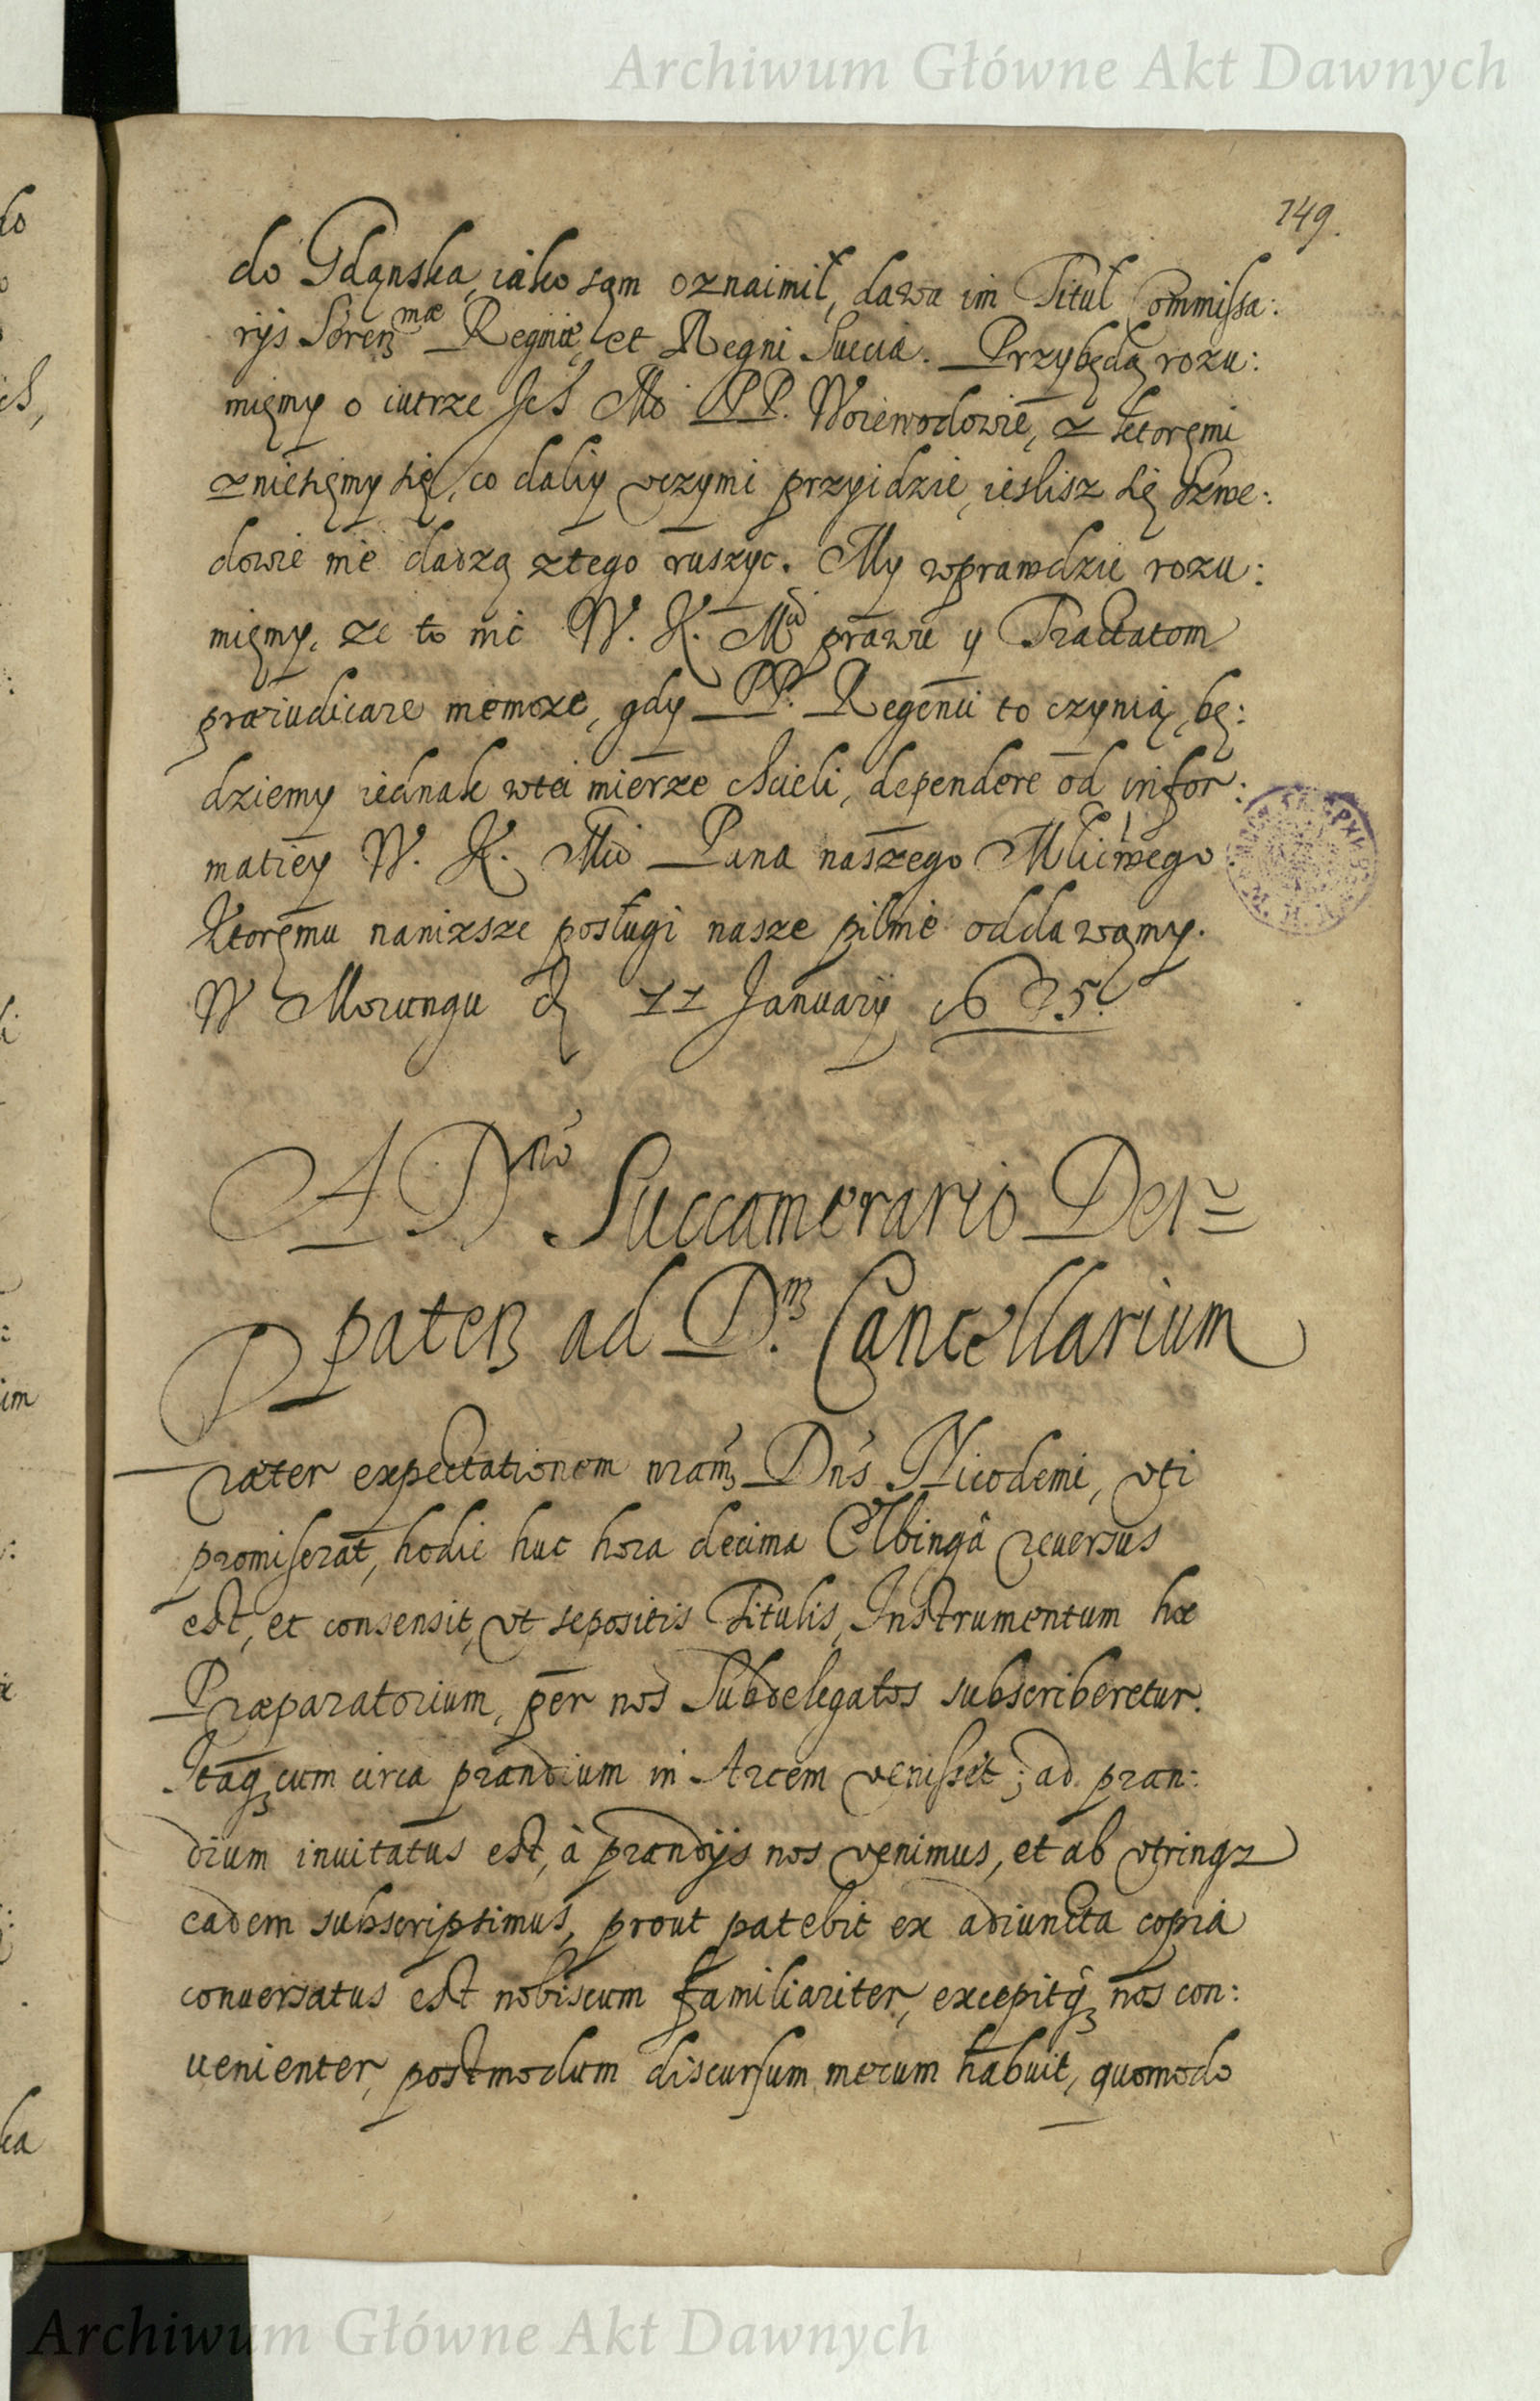 Archiwum Główne Akt Dawnych
149.
do Gdąnska, iako sąm oznaimił, dawa im Titul Commissa:
rijs Seren^mæ Reginiæ, et Regni Sueciæ. Przybędą rozu:
mięmy o iutrze Ich Mó PP. Woiewodowie, z ktoręmi
zniesięmy się, co daliy vczyni przyidzie, ieslisz się Szwe:
dowie nie dadzą ztego ruszyc. My wprawdzie rozu:
mięmy, ze to nic W. K. Mci prawu y Tractatom
præiudicare niemoze, gdy PP. Regenci to czynią, bę:
dziemy iednak wtei mierze chcieli, dependere od infor:
matiey W. K. Mci Pana naszego Mlićiwego
Ktoręmu nanizsze posługi nasze pilnie oddawąmy.
W Morungu d 11 January 1635.
A Dno Succamerario Der=
pateñ ad D.m Cancellarium
Præter expectationem nram Dns Nicodemi, vti
promiserat, hodie huc hora decima Elbingâ reuersus
est, et consensit, vt sepositis Titulis, Instrumentum hoc
Præparatorium, per nos Subdelegatos subscriberetur.
Itaq cum circa prandium in Arcem venisset; ad pran:
dium inuitatus est, à prandijs nos venimus, et ab vtrinq
eadem subscripsimus, prout patebit ex adiuncta copia
conuersatus est nobiscum familiariter, excepitq nos con:
uenienter, postmodum discursum mecum habuit, quomodo
Archiwum Główne Akt Dawnych